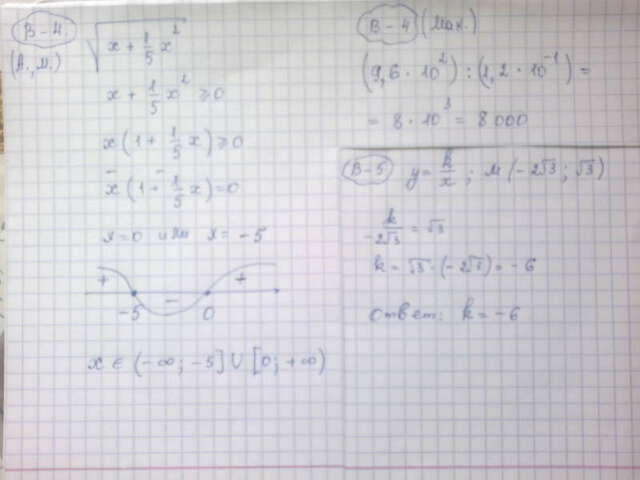 В-4
(А.,М.)
√(x + 1/5 x²)
x + 1/5 x² ≥ 0
x(1 + 1/5 x) ≥ 0
x(1 + 1/5 x) = 0
x = 0 или x = -5
+ - +
-5 0
x ∈ (-∞; -5] ∪ [0; +∞)
В-4 (Мак.)
(9,6 · 10²) : (1,2 · 10⁻¹) =
= 8 · 10³ = 8000
В-5 y = k/x ; М (-2√3 ; √3)
k/-2√3 = √3
k = √3 · (-2√3) = -6
Ответ: k = -6